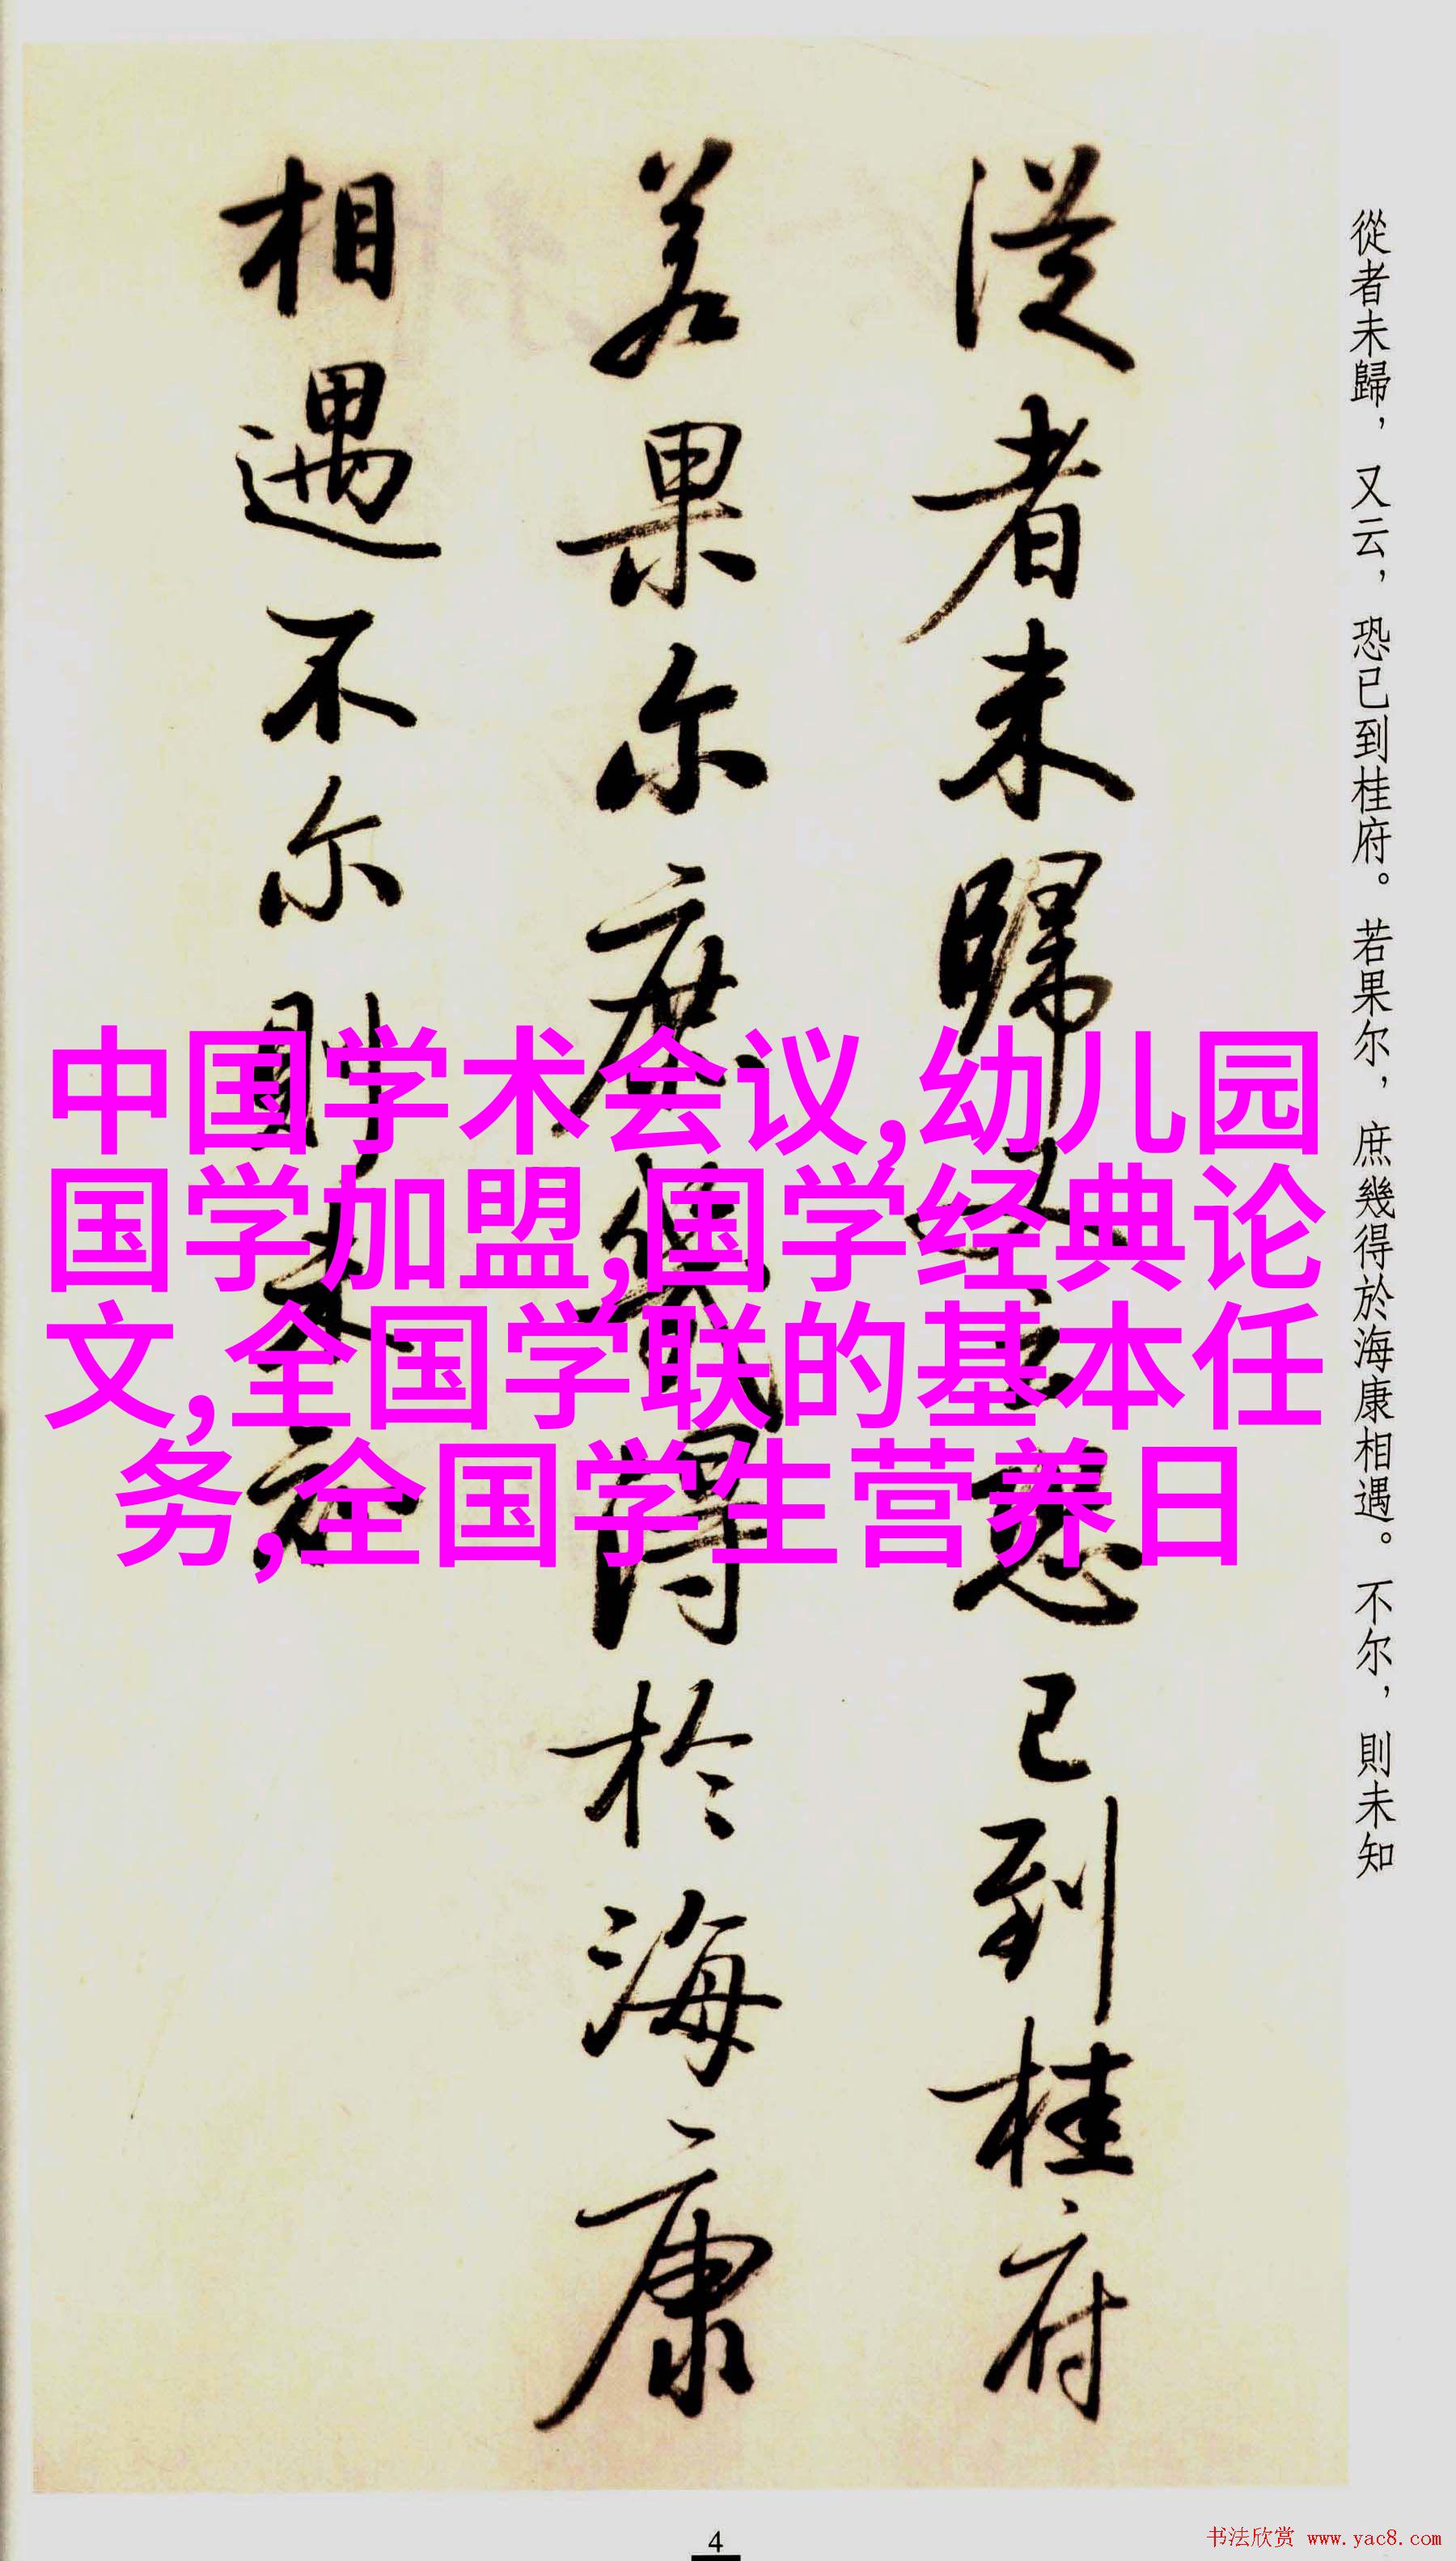 從者未歸，又云，恐已到桂府。若果尔，庶幾得於海康相遇。不尔，則未知
從者未歸又云恐已到桂府
若果尔庶幾得於海康
相遇不尔則未知
中国学术会议,幼儿园
国学加盟,国学经典论
文,全国学联的基本任
务,全国学生营养日
4
书法欣赏 www.yac8.com